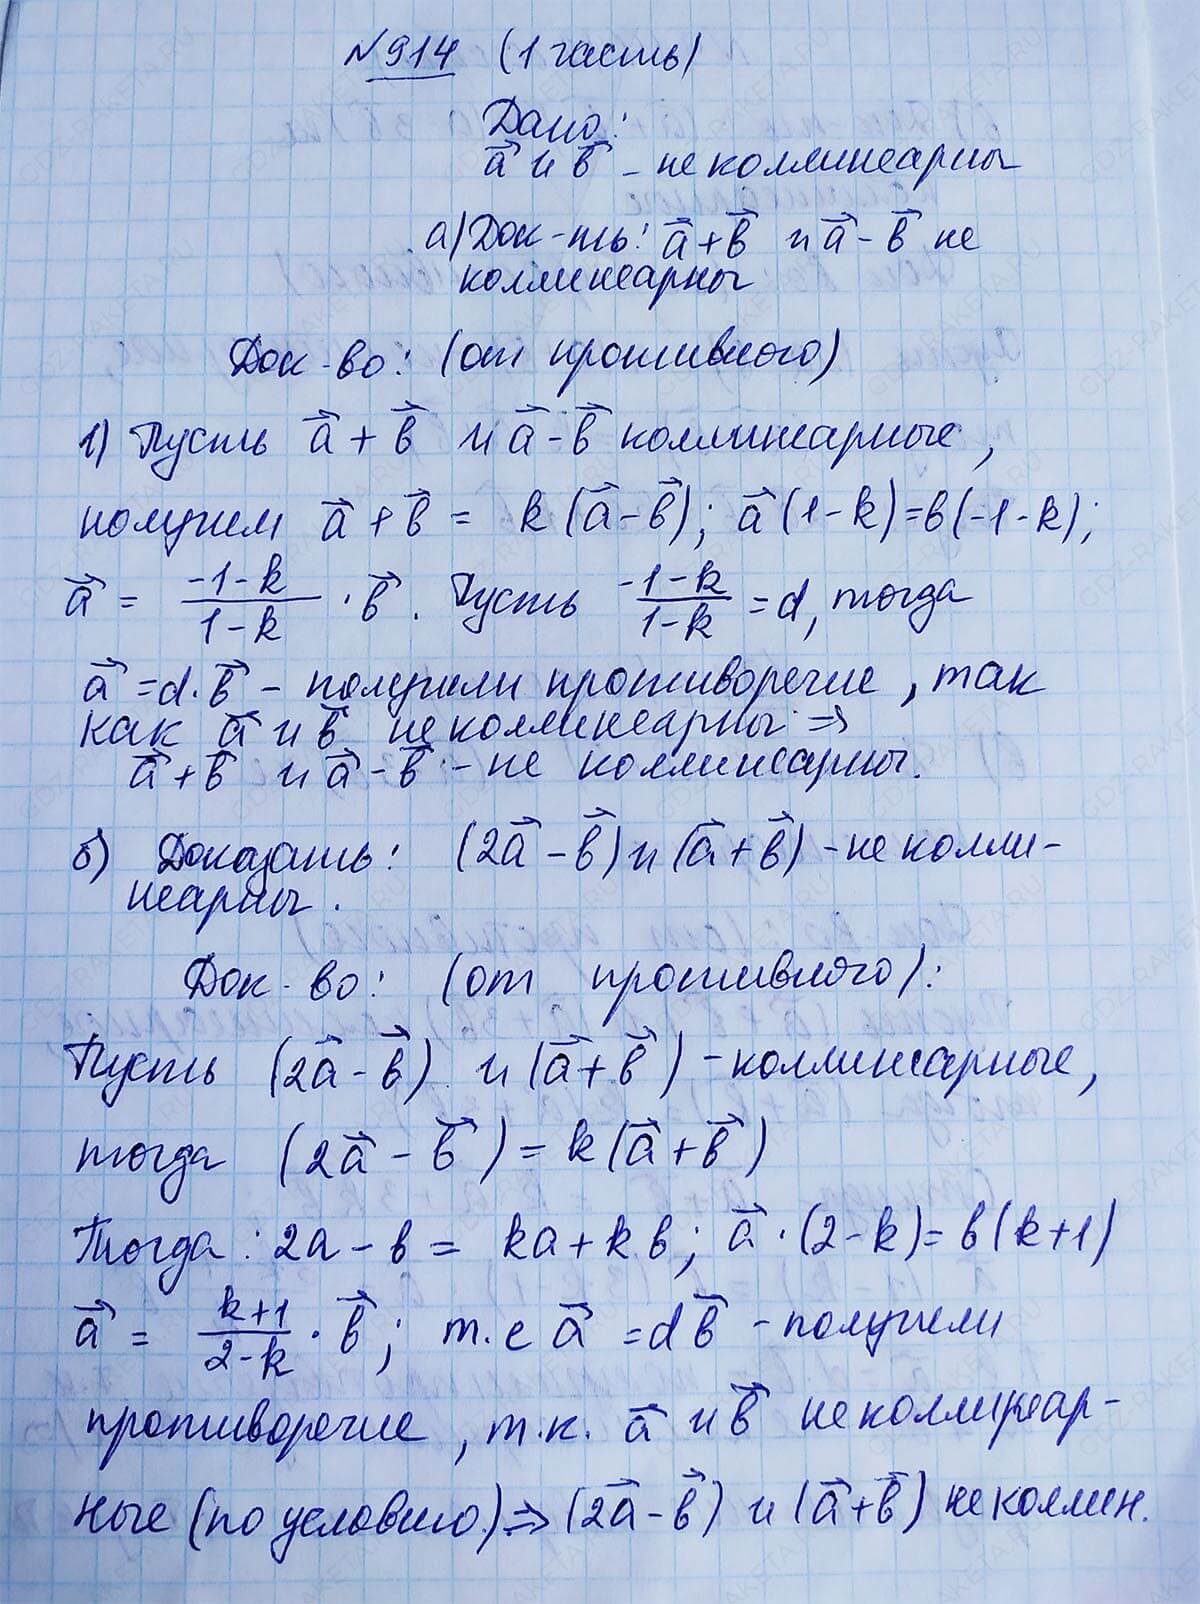 №914 (1 часть)
Дано:
a⃗ и b⃗ – не коллинеарны
а) Док-ть: a⃗+b⃗ и a⃗-b⃗ не
коллинеарны
Док-во: (от противного)
1) Пусть a⃗+b⃗ и a⃗-b⃗ коллинеарные,
получим a⃗+b⃗ = k(a⃗-b⃗); a⃗(1-k)=b(-1-k);
a⃗ = (-1-k)/(1-k) · b⃗. Пусть (-1-k)/(1-k) = d, тогда
a⃗=d·b⃗ – получили противоречие, так
как a⃗ и b⃗ не коллинеарны ⇒
a⃗+b⃗ и a⃗-b⃗ – не коллинеарны.
б) Доказать: (2a⃗-b⃗) и (a⃗+b⃗) – не колли-
неарны.
Док-во: (от противного):
Пусть (2a⃗-b⃗) и (a⃗+b⃗) – коллинеарные,
тогда (2a⃗-b⃗)=k(a⃗+b⃗)
Тогда: 2a-b = ka+kb; a⃗·(2-k)=b(k+1)
a⃗ = (k+1)/(2-k) · b⃗; т.е a⃗ =db⃗ – получили
противоречие, т.к. a⃗ и b⃗ не коллинеар-
ные (по условию) ⇒ (2a⃗-b⃗) и (a⃗+b⃗) не коллин.